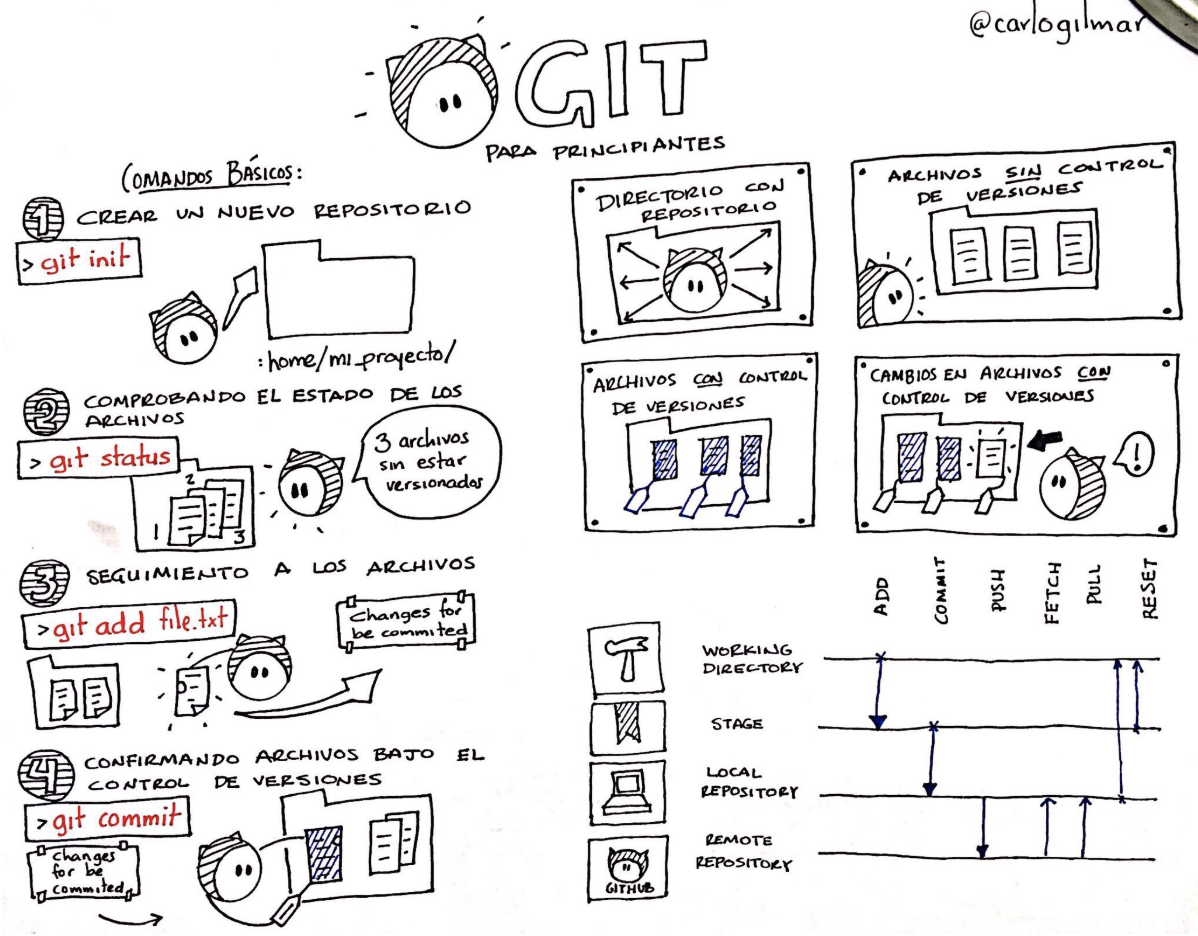 @carlogilmar
GIT
PARA PRINCIPIANTES
COMANDOS BÁSICOS:
1 CREAR UN NUEVO REPOSITORIO
> git init
:home/mi_proyecto/
2 COMPROBANDO EL ESTADO DE LOS
ARCHIVOS
> git status
3 archivos
sin estar
versionados
1 2 3
3 SEGUIMIENTO A LOS ARCHIVOS
> git add file.txt
Changes for
be commited
4 CONFIRMANDO ARCHIVOS BAJO EL
CONTROL DE VERSIONES
> git commit
Changes
for be
commited
DIRECTORIO CON
REPOSITORIO
ARCHIVOS SIN CONTROL
DE VERSIONES
ARCHIVOS CON CONTROL
DE VERSIONES
CAMBIOS EN ARCHIVOS CON
CONTROL DE VERSIONES
!
ADD
COMMIT
PUSH
FETCH
PULL
RESET
WORKING
DIRECTORY
STAGE
LOCAL
REPOSITORY
REMOTE
REPOSITORY
GITHUB